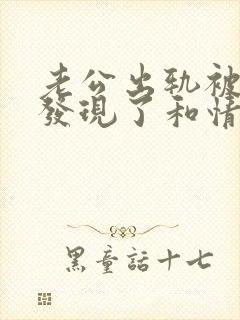 老公出軌被
發現了和情
黑童話十七